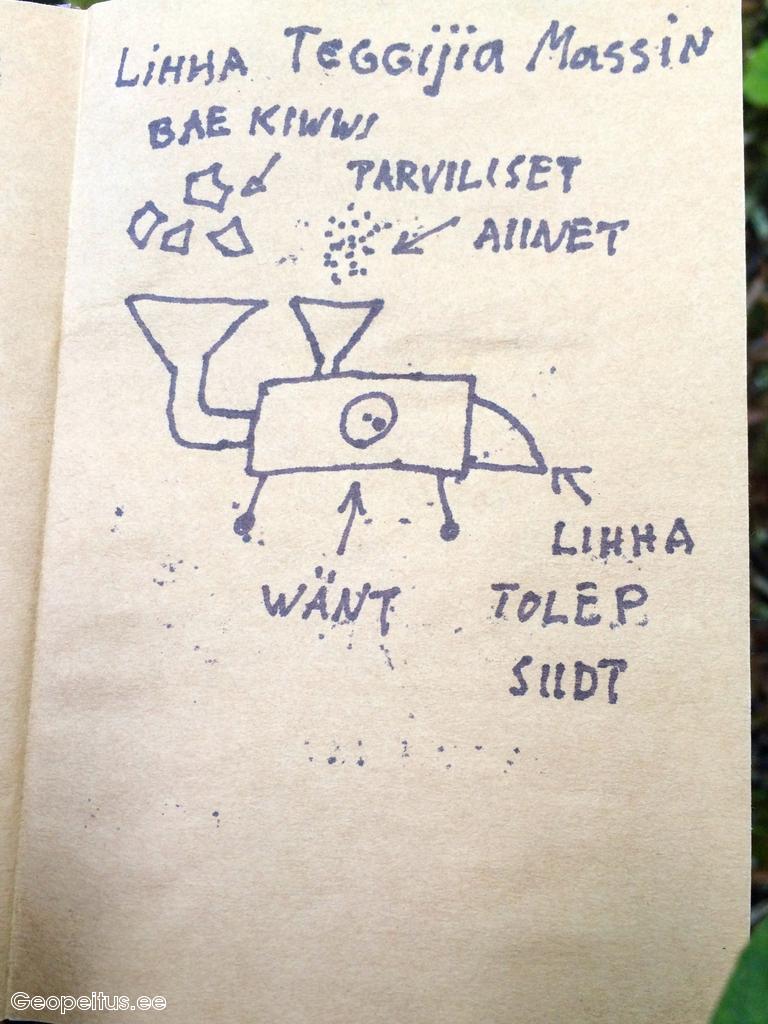 LiHHA TEGGijia MASSiN
BAE KIWWI
PARVILISET
AIINET
WÄNT
LIHHA
TOLEP
SIIDT
Geopeitus.ee